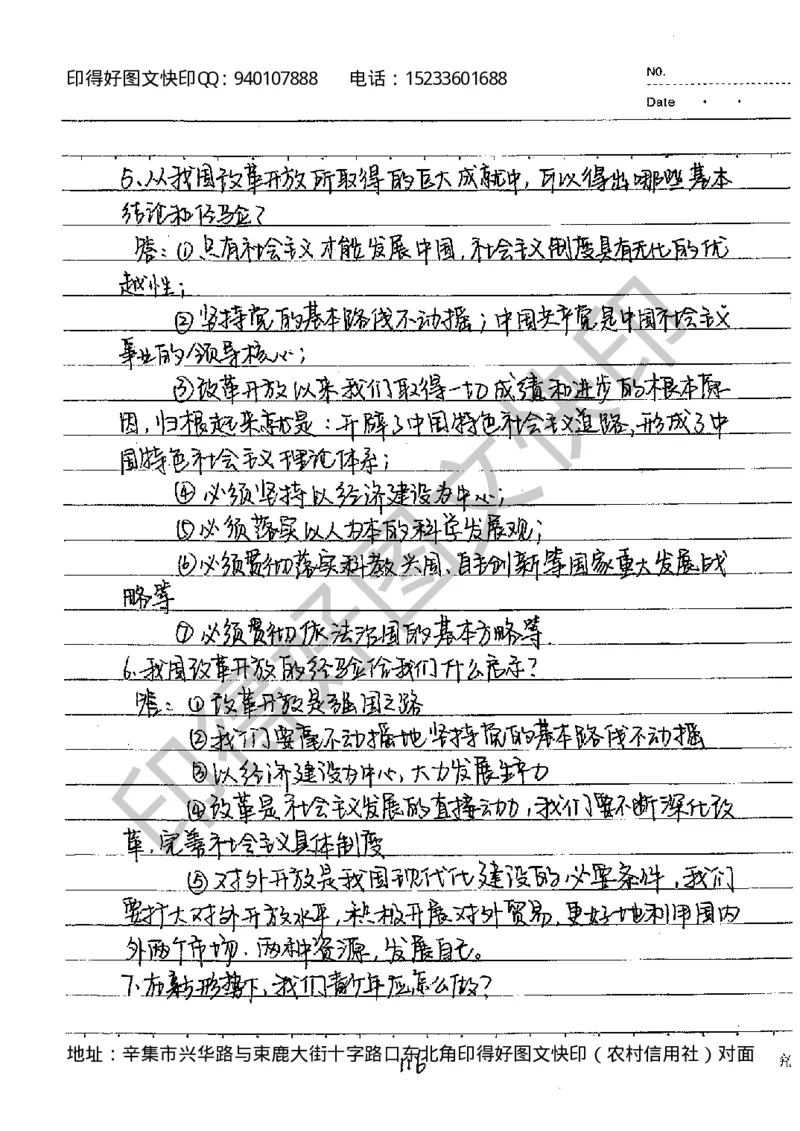 印得好图文快印QQ：940107888 电话：15233601688
NO.
Date
5、从我国改革开放所取得的巨大成就中，可以得出哪些基本
结论和经验？
答：①只有社会主义才能发展中国，社会主义制度具有无比的优
越性；
②坚持党的基本路线不动摇；中国共产党是中国社会主义
事业的领导核心；
③改革开放以来我们取得一切成绩和进步的根本原
因，归根起来就是：开辟了中国特色社会主义道路，形成了中
国特色社会主义理论体系；
④必须坚持以经济建设为中心；
⑤必须落实以人为本的科学发展观；
⑥必须贯彻落实科教兴国、自主创新等国家重大发展战
略等
⑦必须贯彻依法治国的基本方略等.
6、我国改革开放的经验给我们什么启示？
答：①改革开放是强国之路
②我们要毫不动摇地坚持党的基本路线不动摇
③以经济建设为中心，大力发展生产力
④改革是社会主义发展的直接动力，我们要不断深化改
革，完善社会主义具体制度
⑤对外开放是我国现代化建设的必要条件，我们
要扩大对外开放水平，积极开展对外贸易，更好地利用国内
外两个市场、两种资源，发展自己。
7、在新形势下，我们青少年应怎么做？
地址：辛集市兴华路与束鹿大街十字路口东北角印得好图文快印（农村信用社）对面
印得好图文快印